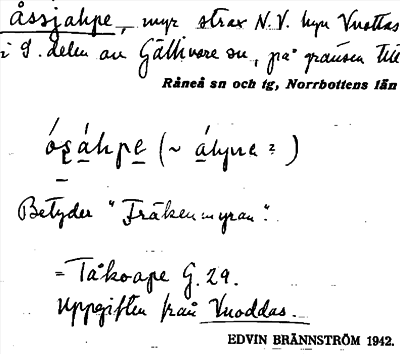 åssjahpe, myr strax N.V. byn Vuottas
i S. delen av Gällivare sn, på gränsen till
Råneå sn och tg, Norrbottens län
óşáhpe (~ áhpe ?)
Betyder "Fräkenmyran".
= Tåkoape G. 29.
Uppgiften från Vuoddas.
EDVIN BRÄNNSTRÖM 1942.